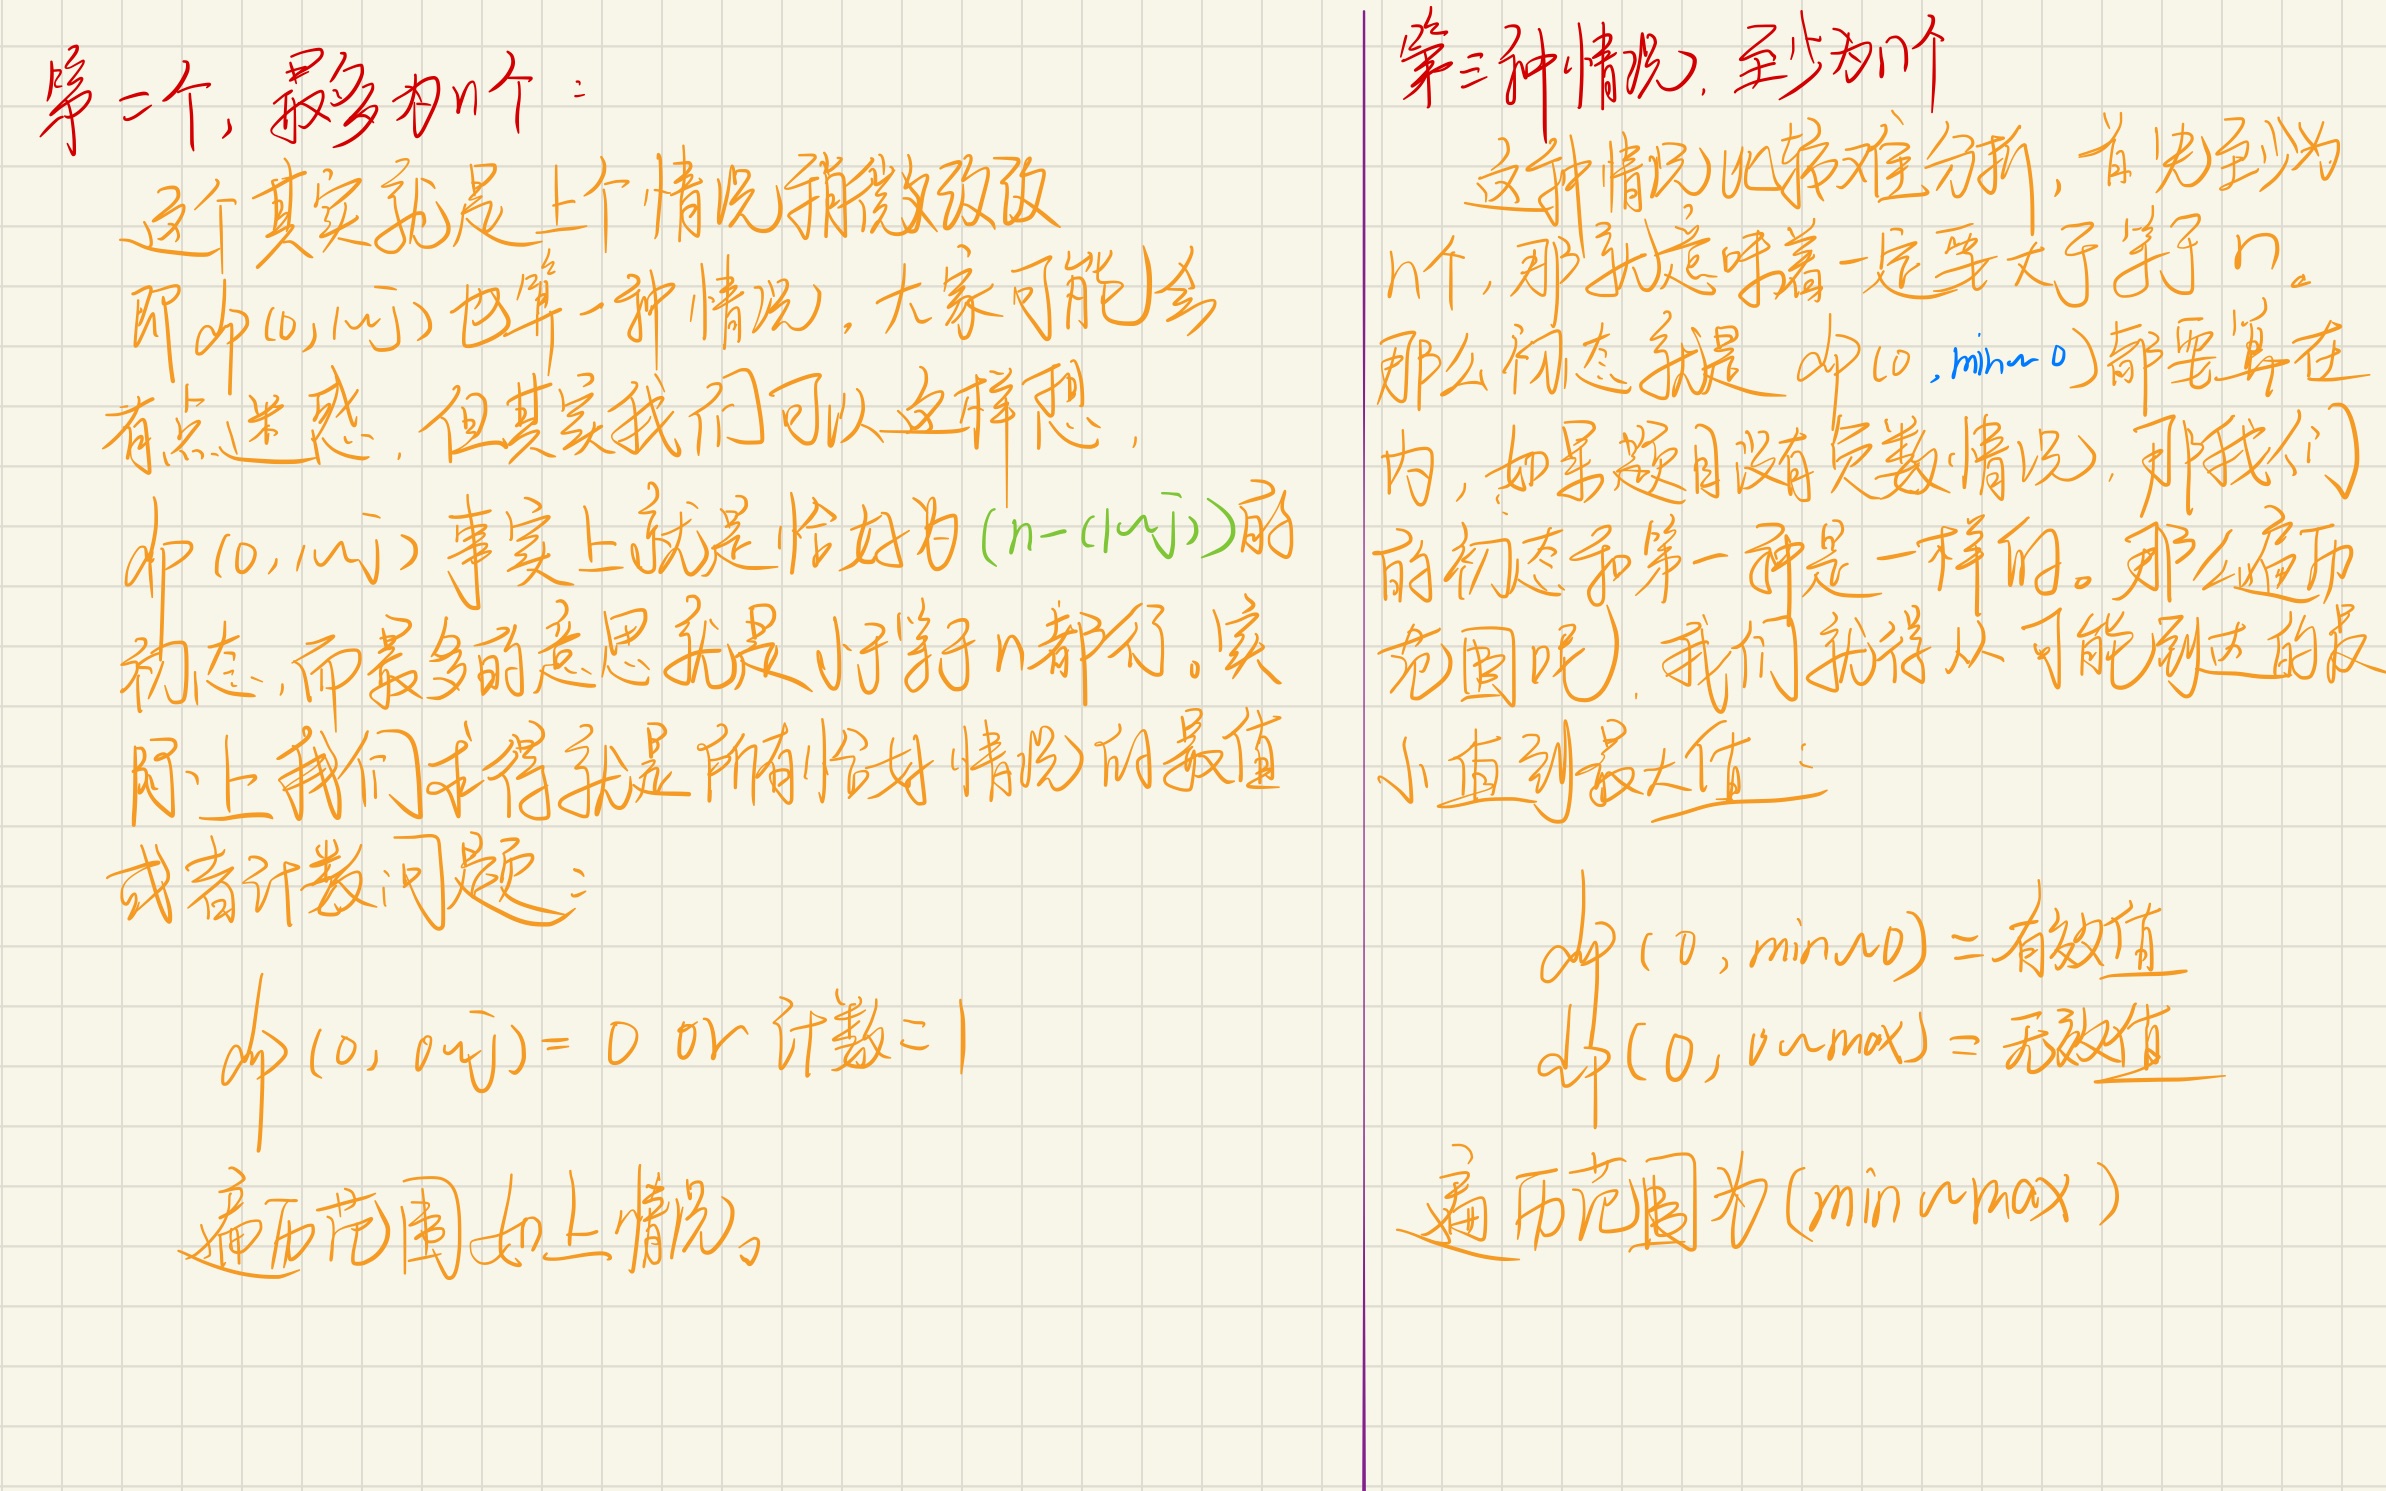 第二个，最多为n个：
这个其实就是上个情况稍微改改
即dp(0,1~j)也算一种情况，大家可能会
有点迷惑，但其实我们可以这样想，
dp(0,1~j)事实上就是恰好为(n-(1~j))的
初态，而最多的意思就是小于等于n都行。实
际上我们求得就是所有恰好情况的最值
或者计数问题：
dp(0,0~j)=0 or 计数=1
遍历范围如上情况。
第三种情况，至少为n个
这种情况比较难分析，首先至少为
n个，那就意味着一定要大于等于n。
那么初态就是dp(0,min~0)都要算在
内，如果题目没有负数情况，那我们
的初态和第一种是一样的。那么遍历
范围呢，我们就得从可能到达的最
小值到最大值：
dp(0,min~0)=有效值
dp(0,0~max)=无效值
遍历范围为(min~max)